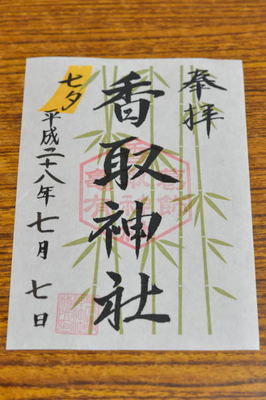 奉拝
香取神社
七夕
平成二十八年七月七日